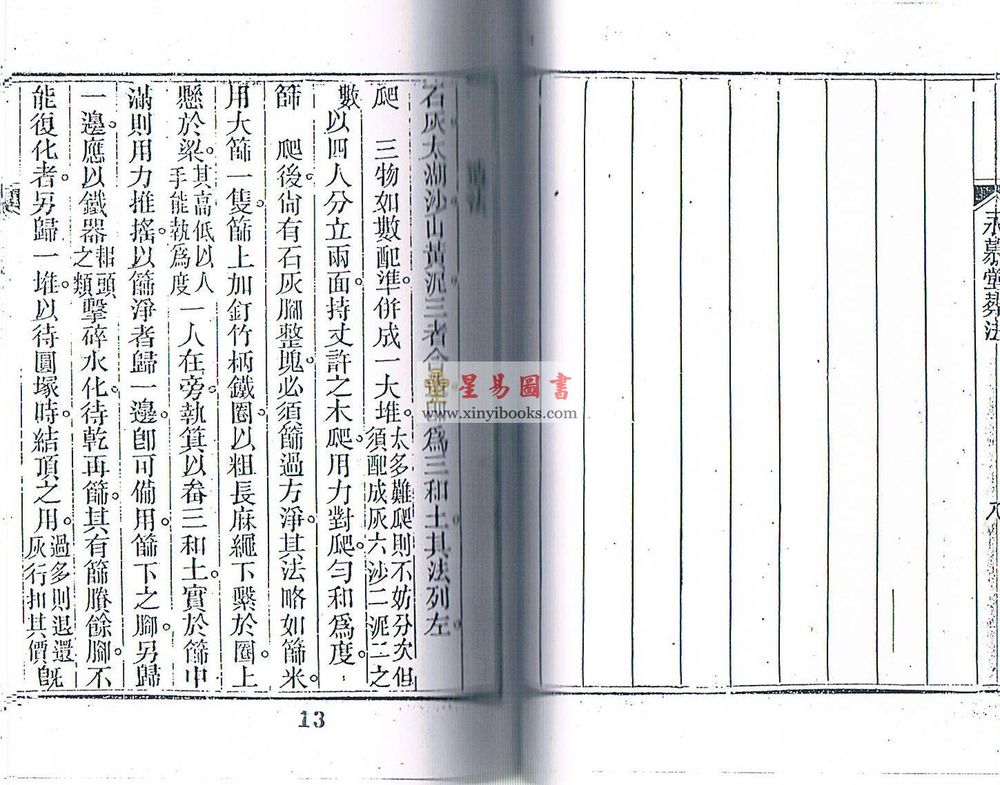 永慕堂葬法
石灰太湖沙山黃泥三者合爲三和土其法列左
爬　三物如數配準。併成一大堆。太多難爬則不妨分次但須配成灰六沙二泥二之
數　以四人分立兩面。持丈許之木爬。用力對爬。勻和爲度。
篩　爬後。尙有石灰腳整塊。必須篩過方淨。其法略如篩米。
用大篩一隻。篩上加釘竹柄鐵圈。以粗長麻繩下繫於圈。上
懸於梁。其高低以人手能執爲度一人在旁。執箕以畚三和土。實於篩中
滿則用力推搖。以篩淨者歸一邊。卽可備用。篩下之腳。另歸
一邊。應以鐵器頭之類擊碎水化。待乾再篩。其有篩賸餘腳。不
能復化者。另歸一堆。以待圓塚時。結頂之用。過多則退還灰行扣其價旣
13
星易圖書
www.xinyibooks.com